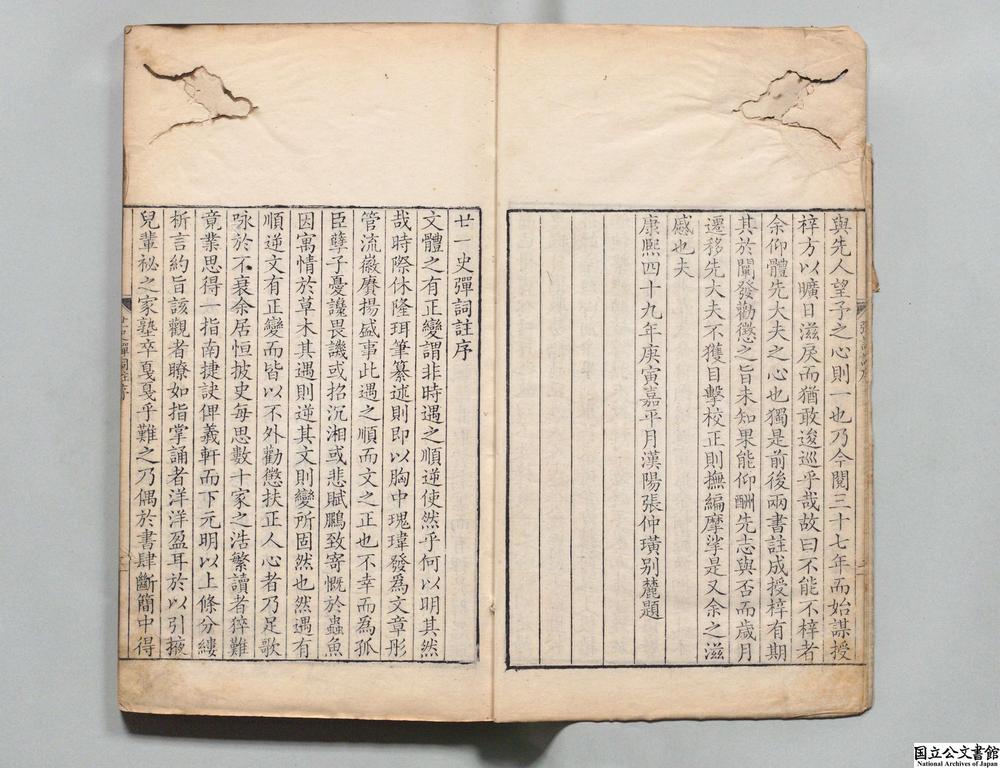 與先人望予之心則一也乃今閱三十七年而始謀授
梓方以曠日滋戾而猶敢逡巡乎哉故曰不能不梓者
余仰體先大夫之心也獨是前後兩書註成授梓有期
其於闡發勸懲之旨未知果能仰酬先志與否而歲月
遷移先大夫不獲目擊校正則撫編摩挲是又余之滋
慼也夫
康熙四十九年庚寅嘉平月漢陽張仲璜別麓題
廿一史彈詞註序
文體之有正變謂非時遇之順逆使然乎何以明其然
哉時際休隆珥筆纂述則即以胸中瑰瑋發為文章彤
管流徽賡揚盛事此遇之順而文之正也不幸而為孤
臣孽子憂讒畏譏或招沉湘或悲賦鵩致寄慨於蟲魚
因寓情於草木其遇則逆其文則變所固然也然遇有
順逆文有正變而皆以不外勸懲扶正人心者乃足歌
咏於不衰余居恒披史每思數十家之浩繁讀者猝難
竟業思得一指南捷訣俾羲軒而下元明以上條分縷
析言約旨該觀者瞭如指掌誦者洋洋盈耳於以引掖
兒輩祕之家塾卒戛戛乎難之乃偶於書肆斷簡中得
国立公文書館
National Archives of Japan